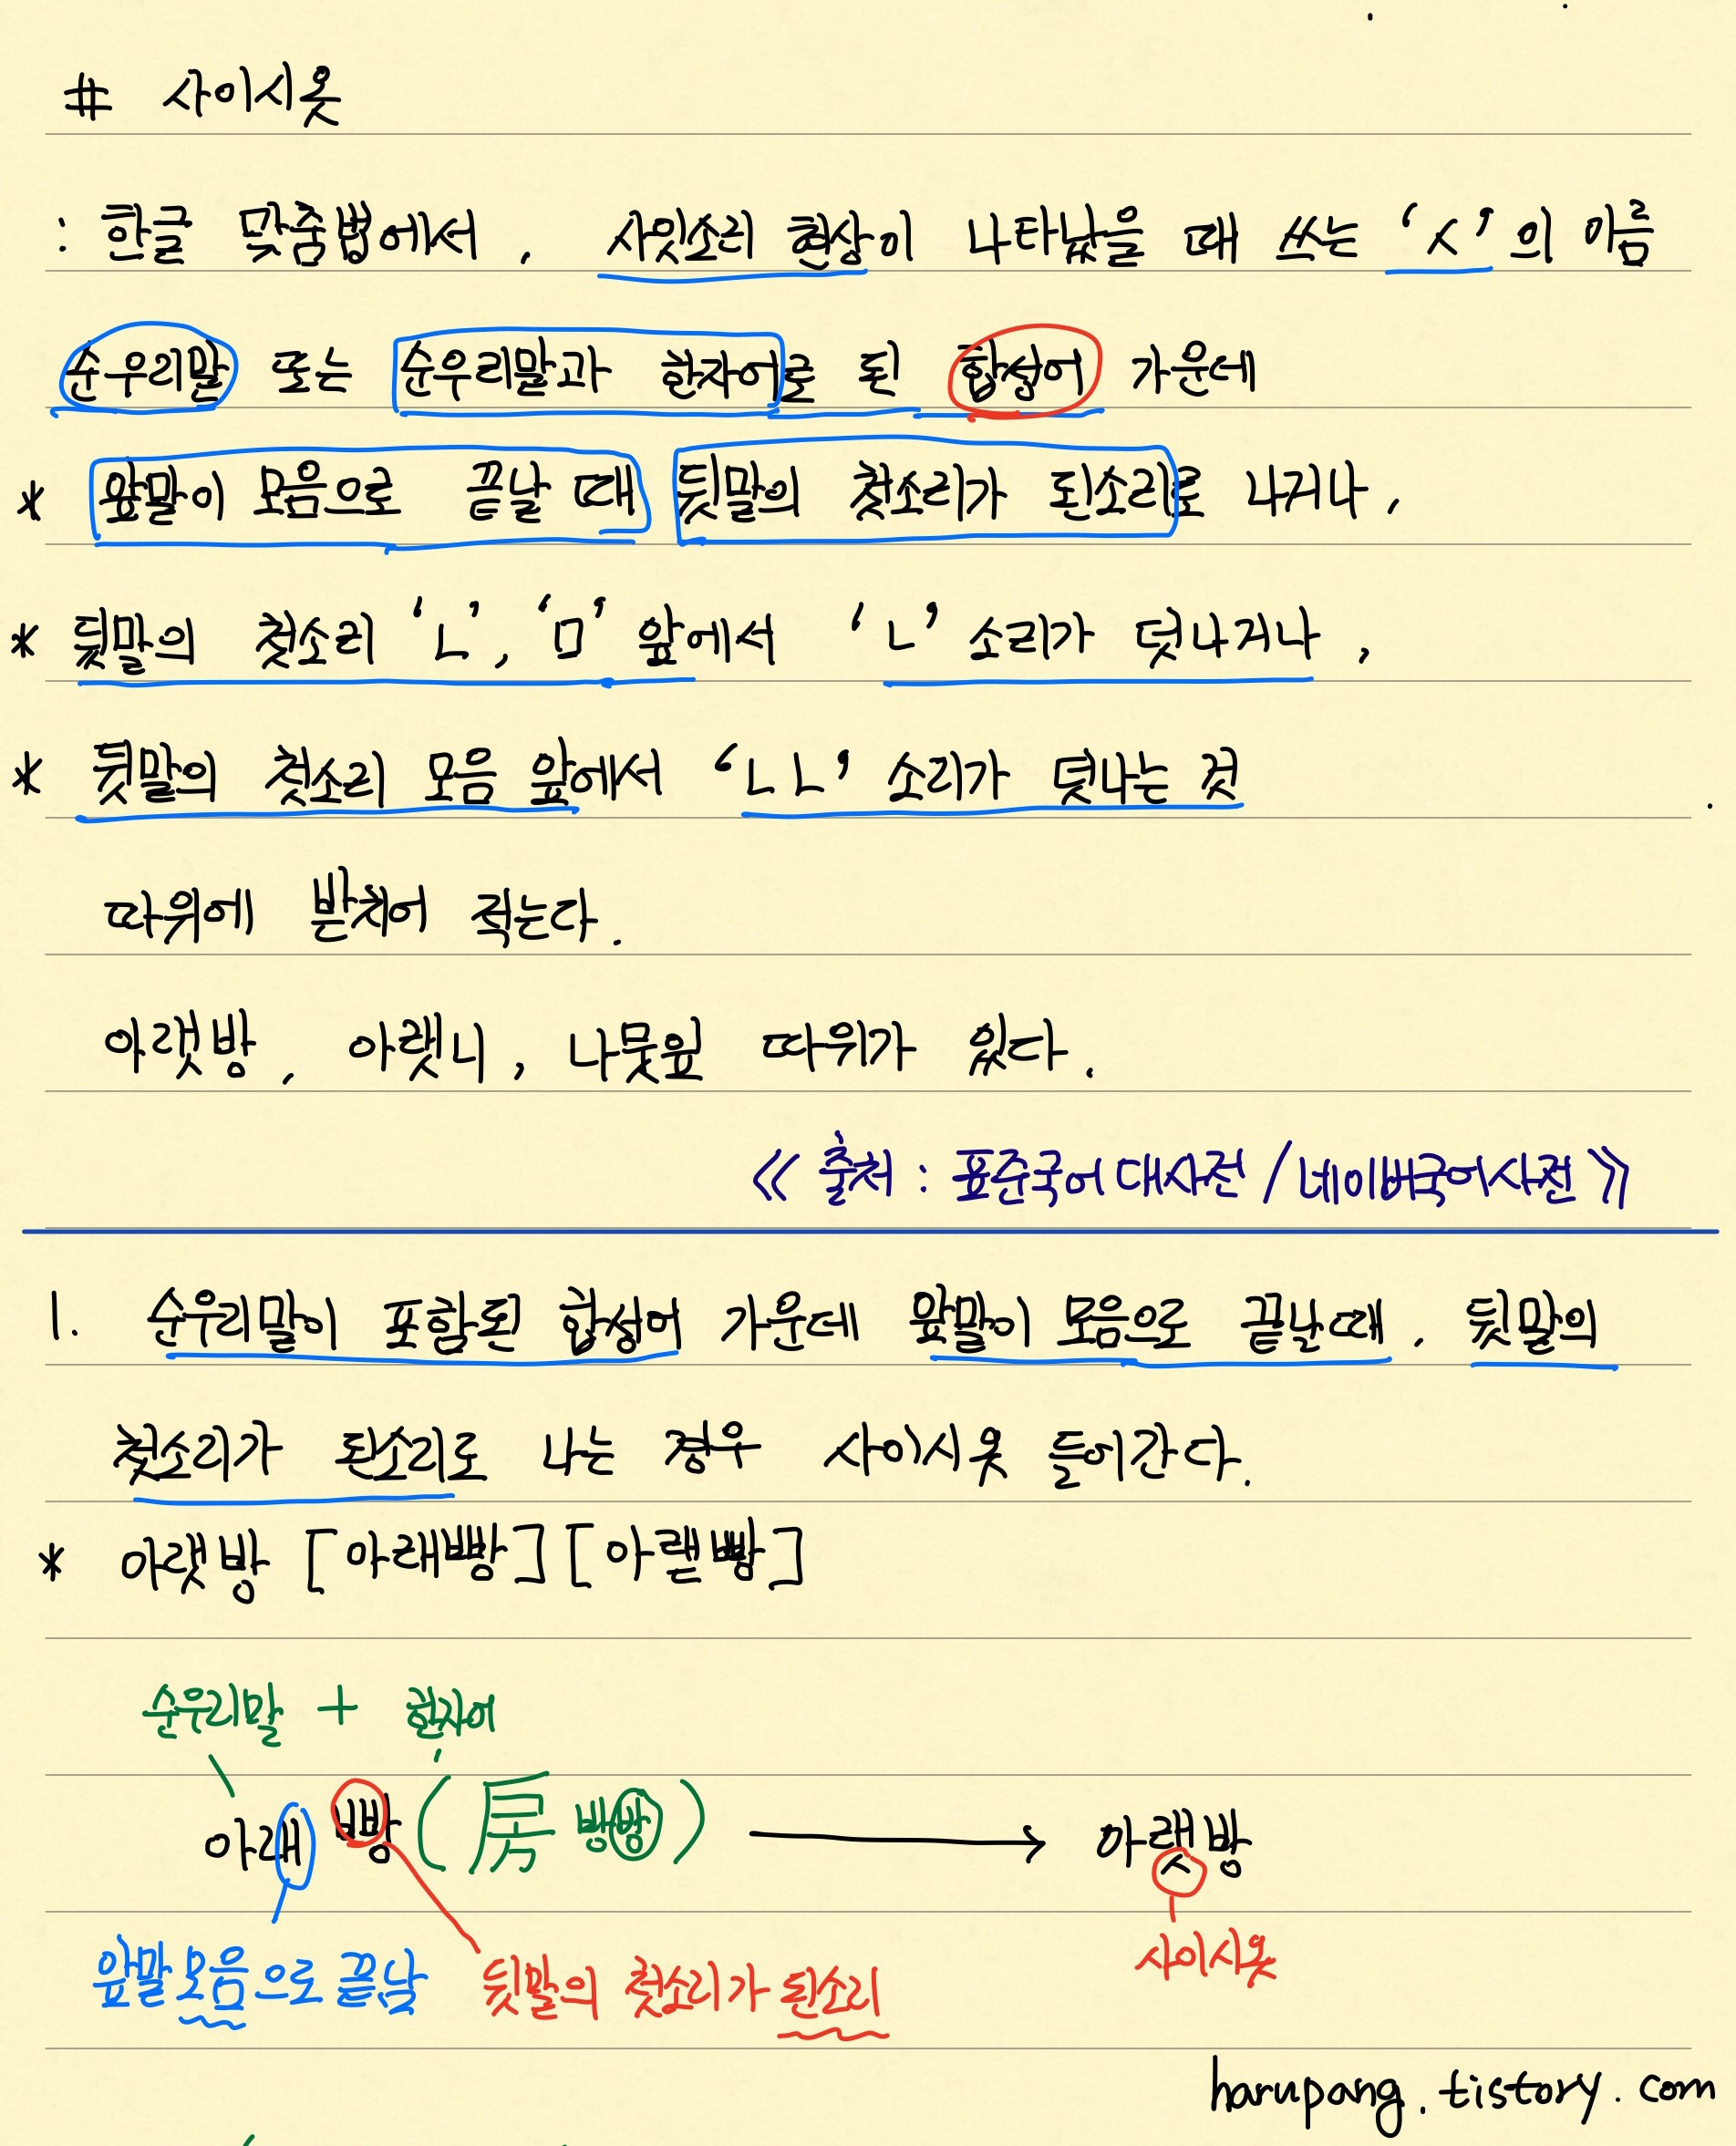 # 사이시옷
: 한글 맞춤법에서, 사잇소리 현상이 나타났을 때 쓰는 'ㅅ'의 이름
순우리말 또는 순우리말과 한자어로 된 합성어 가운데
* 앞말이 모음으로 끝날 때 뒷말의 첫소리가 된소리로 나거나,
* 뒷말의 첫소리 'ㄴ', 'ㅁ' 앞에서 'ㄴ' 소리가 덧나거나,
* 뒷말의 첫소리 모음 앞에서 'ㄴㄴ' 소리가 덧나는 것
따위에 받치어 적는다.
아랫방, 아랫니, 나뭇잎 따위가 있다.
《 출처 : 표준국어대사전 / 네이버국어사전 》
1. 순우리말이 포함된 합성어 가운데 앞말이 모음으로 끝날때, 뒷말의
첫소리가 된소리로 나는 경우 사이시옷 들어간다.
* 아랫방 [아래빵] [아랟빵]
순우리말 + 한자어
아래 빵 (房 방방) → 아랫방
앞말 모음으로 끝남 뒷말의 첫소리가 된소리 사이시옷
harupang.tistory.com